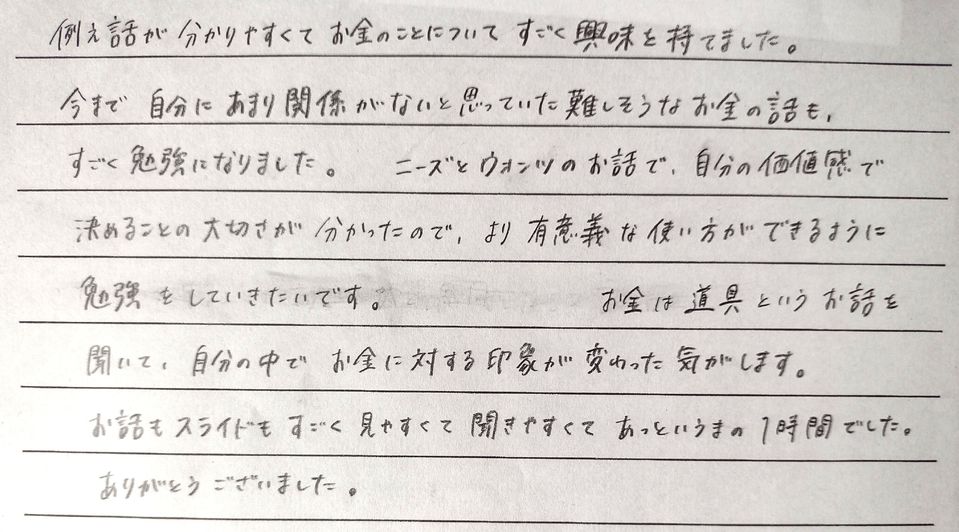 例え話が分かりやすくてお金のことについてすごく興味を持てました。
今まで自分にあまり関係がないと思っていた難しそうなお金の話も、
すごく勉強になりました。 ニーズとウォンツのお話で、自分の価値感で
決めることの大切さが分かったので、より有意義な使い方ができるように
勉強をしていきたいです。 お金は道具というお話を
聞いて、自分の中でお金に対する印象が変わった気がします。
お話もスライドもすごく見やすくて聞きやすくてあっというまの1時間でした。
ありがとうございました。